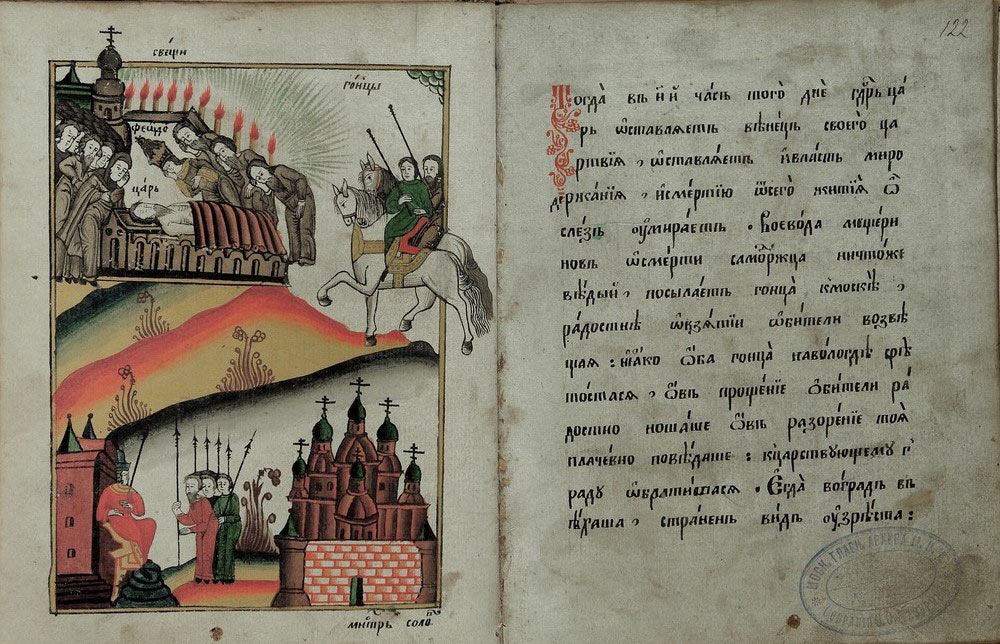 свещи
гонцы
царь
мнтрь соло
122
Тогда въ и҃й часъ того дне гдⷭ҇рь ца
рь ѡставляетъ вѣнецъ своего ца
рствїя, ѡставляетъ ивласть миро
держанїя, исмертїю ѿсего житїя ѿ
слезъ оумираетъ. Воевода мещери
новъ ѡсмерти самоⷣржца ничтоже
вѣдый, посылаетъ гонца кмосквѣ,
радостнѣ ѡвзятїи ѡбители возвѣ
щая: ꙗко ѡба гонца наволгдѣ срѣ
тостася, ѡвъ прощенїе ѡбители ра
достно ношаше ѡвъ разоренїе тоя
плачевно повѣдаше: кцарствующему г
раду ѡбратишася. Егда воградъ въ
ѣхаша, страненъ видъ оузрѣста: